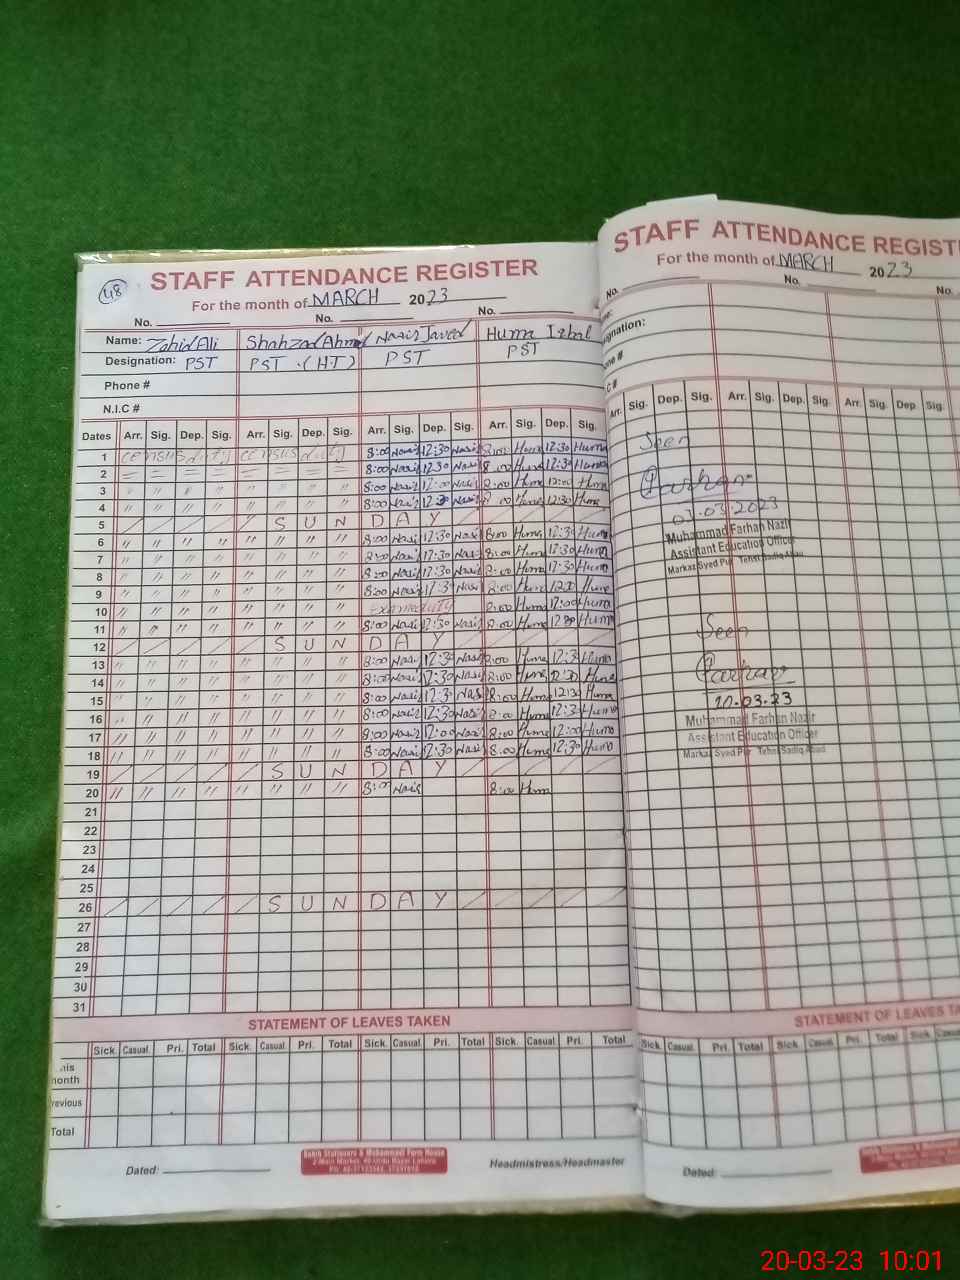 48
STAFF ATTENDANCE REGISTER
For the month of MARCH 2023
No. No. No.
Name: Zahid Ali Shahzad Ahmad Nasir Javed Huma Iqbal
Designation: PST PST . (H.T) PST PST
Phone #
N.I.C #
Dates Arr. Sig. Dep. Sig. Arr. Sig. Dep. Sig. Arr. Sig. Dep. Sig. Arr. Sig. Dep. Sig.
1 CENSUS duty CENSUS duty 8:00 Nasir 12:30 Nasir 8:00 Huma 12:30 Huma
2 = = = = = = = = 8:00 Nasir 12:30 Nasir 8:00 Huma 12:30 Huma
3 " " " " " " " " 8:00 Nasir 12:00 Nasir 8:00 Huma 12:00 Huma
4 " " " " " " " " 8:00 Nasir 12:30 Nasir 8:00 Huma 12:30 Huma
5 S U N D A Y
6 " " " " " " " " 8:00 Nasir 12:30 Nasir 8:00 Huma 12:30 Huma
7 " " " " " " " " 8:00 Nasir 12:30 Nasir 8:00 Huma 12:30 Huma
8 " " " " " " " " 8:00 Nasir 12:30 Nasir 8:00 Huma 12:30 Huma
9 " " " " " " " " 8:00 Nasir 12:30 Nasir 8:00 Huma Huma
10 " " " " " " " " Exam duty 8:00 Huma 12:00 Huma
11 " " " " " " " " 8:00 Nasir 12:30 Nasir 8:00 Huma 12:30 Huma
12 S U N D A Y
13 " " " " " " " " 8:00 Nasir 12:30 Nasir 8:00 Huma 12:30 Huma
14 " " " " " " " " 8:00 Nasir 12:30 Nasir 8:00 Huma 12:30 Huma
15 " " " " " " " " 8:00 Nasir 12:30 Nasir 8:00 Huma 12:30 Huma
16 " " " " " " " " 8:00 Nasir 12:30 Nasir 8:00 Huma 12:30 Huma
17 " " " " " " " " 8:00 Nasir 12:00 Nasir 8:00 Huma 12:00 Huma
18 " " " " " " " " 8:00 Nasir 12:30 Nasir 8:00 Huma 12:30 Huma
19 S U N D A Y
20 " " " " " " " " 8:00 Nasir 8:00 Huma
21
22
23
24
25
26 S U N D A Y
27
28
29
30
31
STATEMENT OF LEAVES TAKEN
Sick. Casual. Pri. Total Sick. Casual. Pri. Total Sick. Casual. Pri. Total Sick. Casual. Pri. Total
his
month
revious
Total
Dated: Headmistress/Headmaster
STAFF ATTENDANCE REGISTE
For the month of MARCH 2023
No. No. No.
me:
signation:
one #
.C #
Arr. Sig. Dep. Sig. Arr. Sig. Dep. Sig. Arr. Sig. Dep. Sig.
Seen
Farhan
03.03.2023
Muhammad Farhan Nazir
Assistant Education Officer
Markaz Syed Pur Tehsil Sadiq Abad
Seen
Farhan
10.03.23
Muhammad Farhan Nazir
Assistant Education Officer
Markaz Syed Pur Tehsil Sadiq Abad
STATEMENT OF LEAVES TA
Sick. Casual. Pri. Total Sick. Casual. Pri. Total Sick. Casual
Dated:
20-03-23 10:01